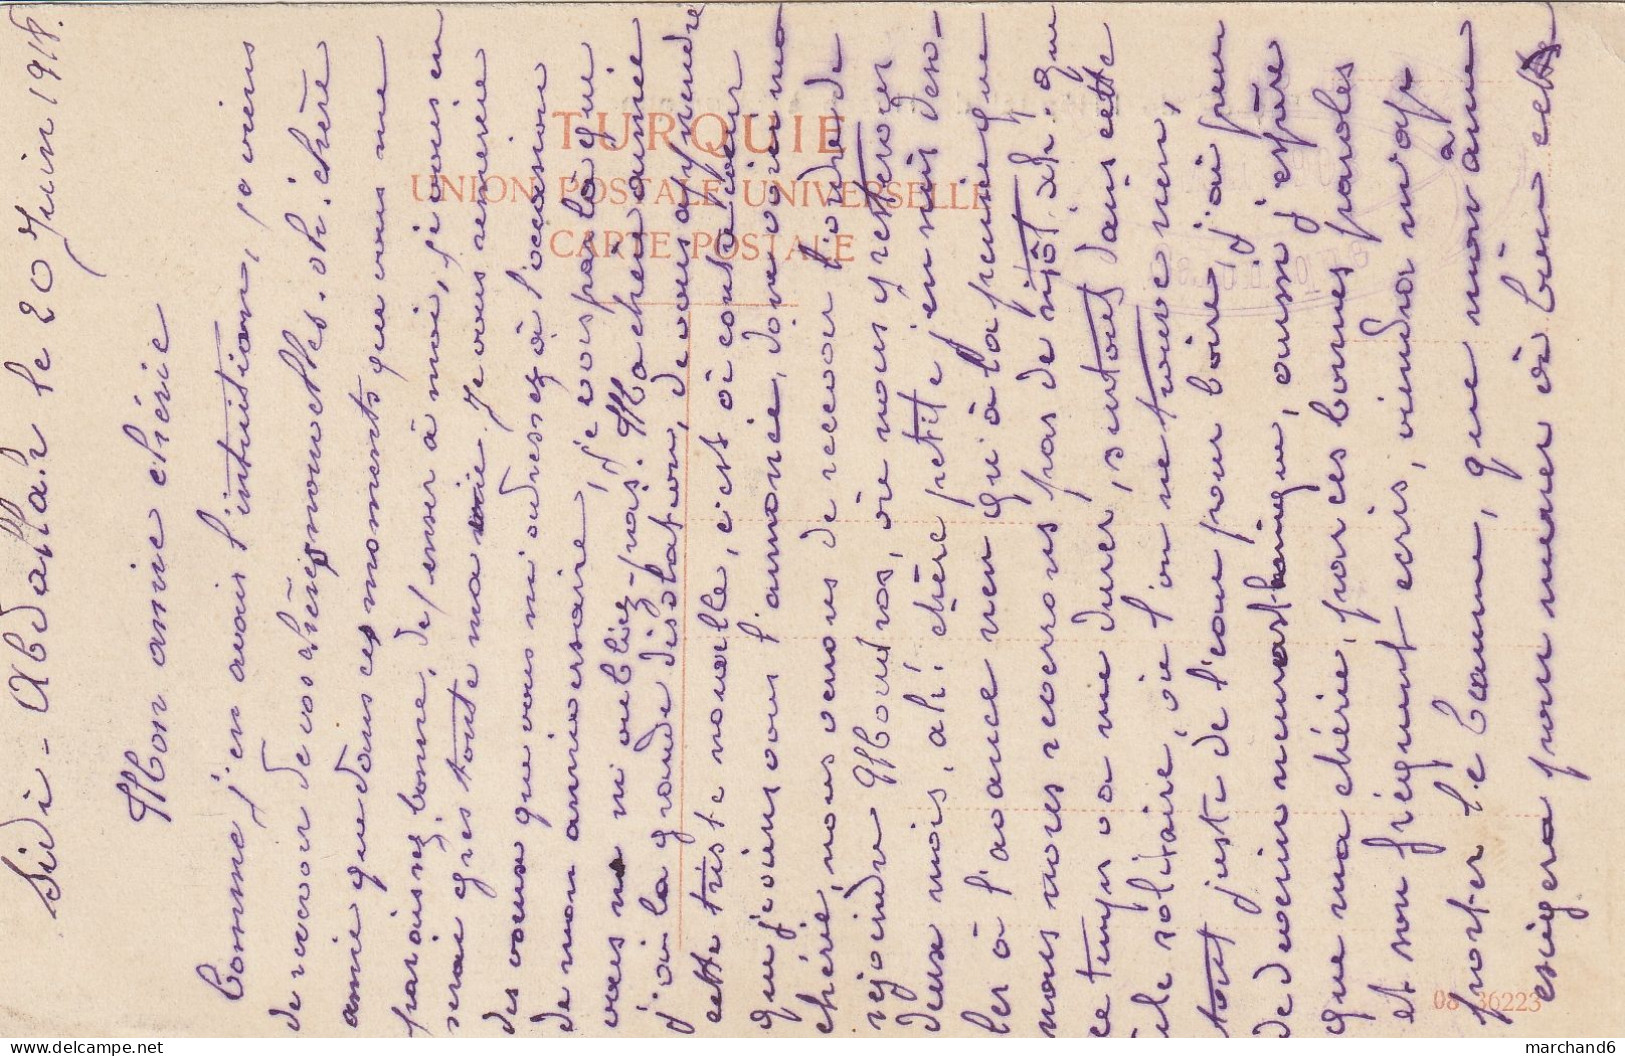 Sidi-Abdallah le 20 Juin 1918.
Mon amie chérie
Comme j'en avais l'intuition, je viens
de recevoir de vos chères nouvelles. oh. chère
amie que dans ces moments que vous me
paraissez bonne, de penser à moi, je vous en
serai gré toute ma vie. Je vous remercie
des voeux que vous m'adressez à l'occasion
de mon anniversaire, je vois par là que
vous ne m'oubliez pas. Ma chère aimée
j'ai la grande désolation, de vous apprendre
cette triste nouvelle, c'est à contre coeur
que je viens vous l'annoncer, donc voici ma
chérie, nous venons de recevoir l'ordre de
rejoindre Moudros, où nous resterons
deux mois, ah! chère petite j'en suis déso-
lé à l'avance rien qu'à la pensée que
nous nous verrons pas de sitôt, ah. que
ce temps va me durer, surtout dans cette
île solitaire, où l'on ne trouve rien,
tout juste de l'eau pour boire, j'ai peur
de devenir neurasthénique, aussi j'espère
que ma chérie, par ces bonnes paroles
et son fréquent écris, viendra m'ap-
porter le baume, que mon âme
exigera pour mener à bien cette
TURQUIE
UNION POSTALE UNIVERSELLE
CARTE POSTALE
08 36223
www.delcampe.net
marchand6